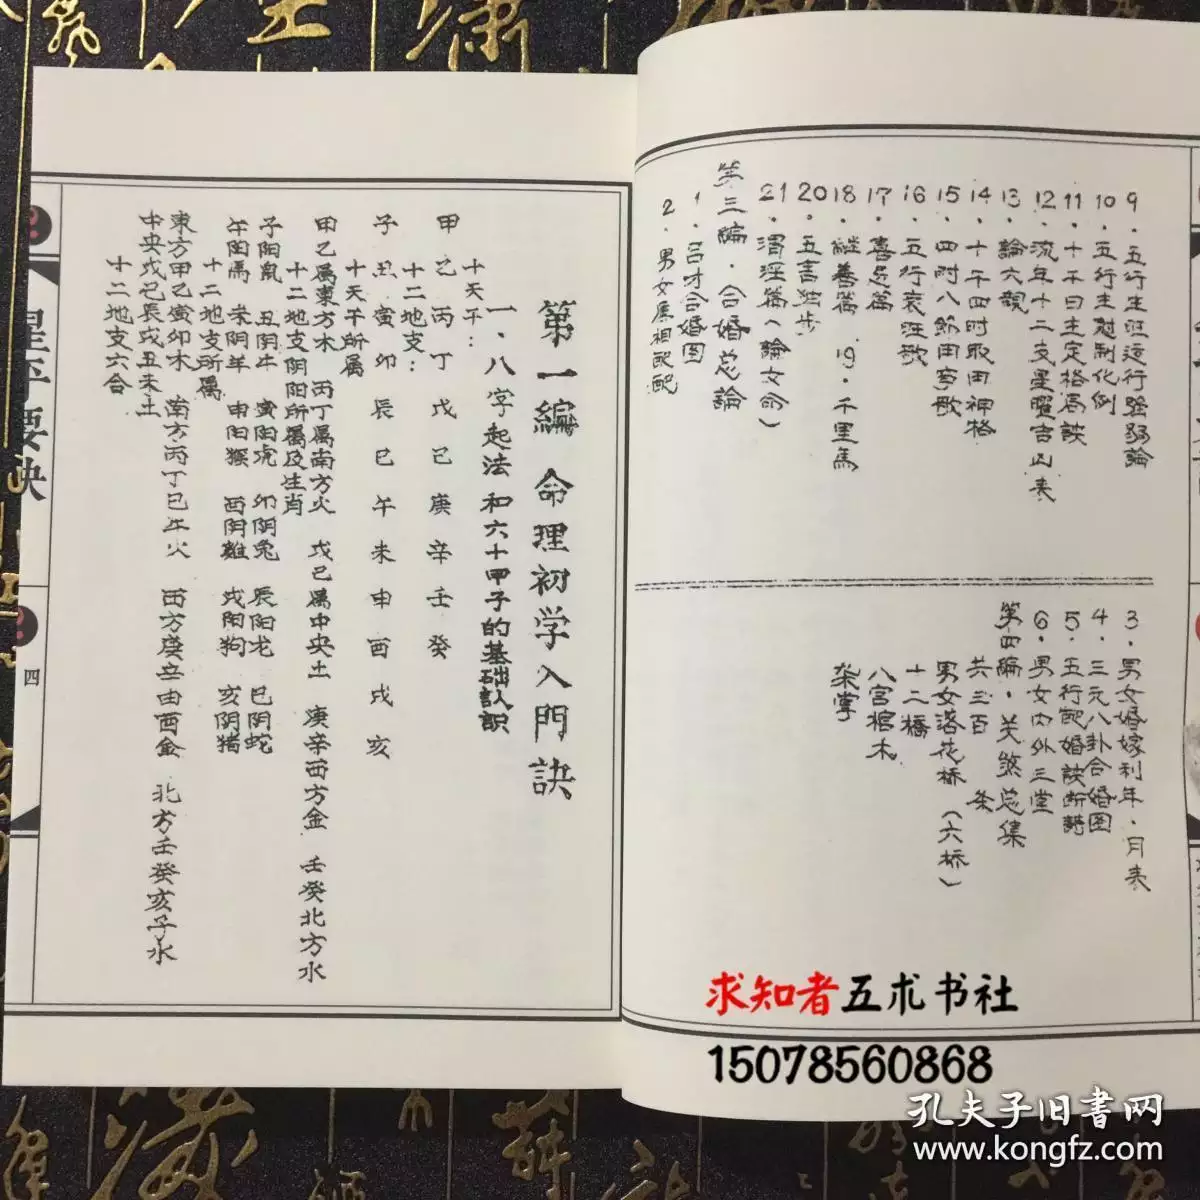 9.五行生旺运行强弱論
10.五行生尅制化例
11.十干日主定格局訣
12.流年十二支星曜吉凶表
13.論六親
14.十干四时取用神格
15.四时八節用事歌
16.五行衰旺歌
17.喜忌篇
18.繼善篇 19.千里馬
20.五言独步
21.渭涇篇(論女命)
第三編.合婚总論
1.吕才合婚图
2.男女属相配配
3.男女婚嫁利年.月表
4.三元八卦合婚图
5.五行配婚訣断語
6.男女内外三堂
第四編.关煞总集
共三百 条
男女落花桥(六桥)
十二橋
八宫棺木
架掌
第一編 命理初学入門訣
一.八字起法和六十甲子的基础认识
十天干:
甲乙丙丁戊己庚辛壬癸
十二地支:
子丑寅卯辰巳午未申酉戌亥
十天干所属
甲乙属東方木 丙丁属南方火 戊己属中央土 庚辛西方金 壬癸北方水
十二地支阴阳所属及生肖
子阳鼠 丑阴牛 寅阳虎 卯阴兔 辰阳龙 巳阴蛇
午阳馬 未阴羊 申阳猴 酉阴雞 戌阳狗 亥阴猪
十二地支所属
東方甲乙寅卯木 南方丙丁巳午火 西方庚辛申酉金 北方壬癸亥子水
中央戊己辰戌丑未土
十二地支六合
星平要訣
四
求知者五术书社
15078560868
孔夫子旧書网
www.kongfz.com